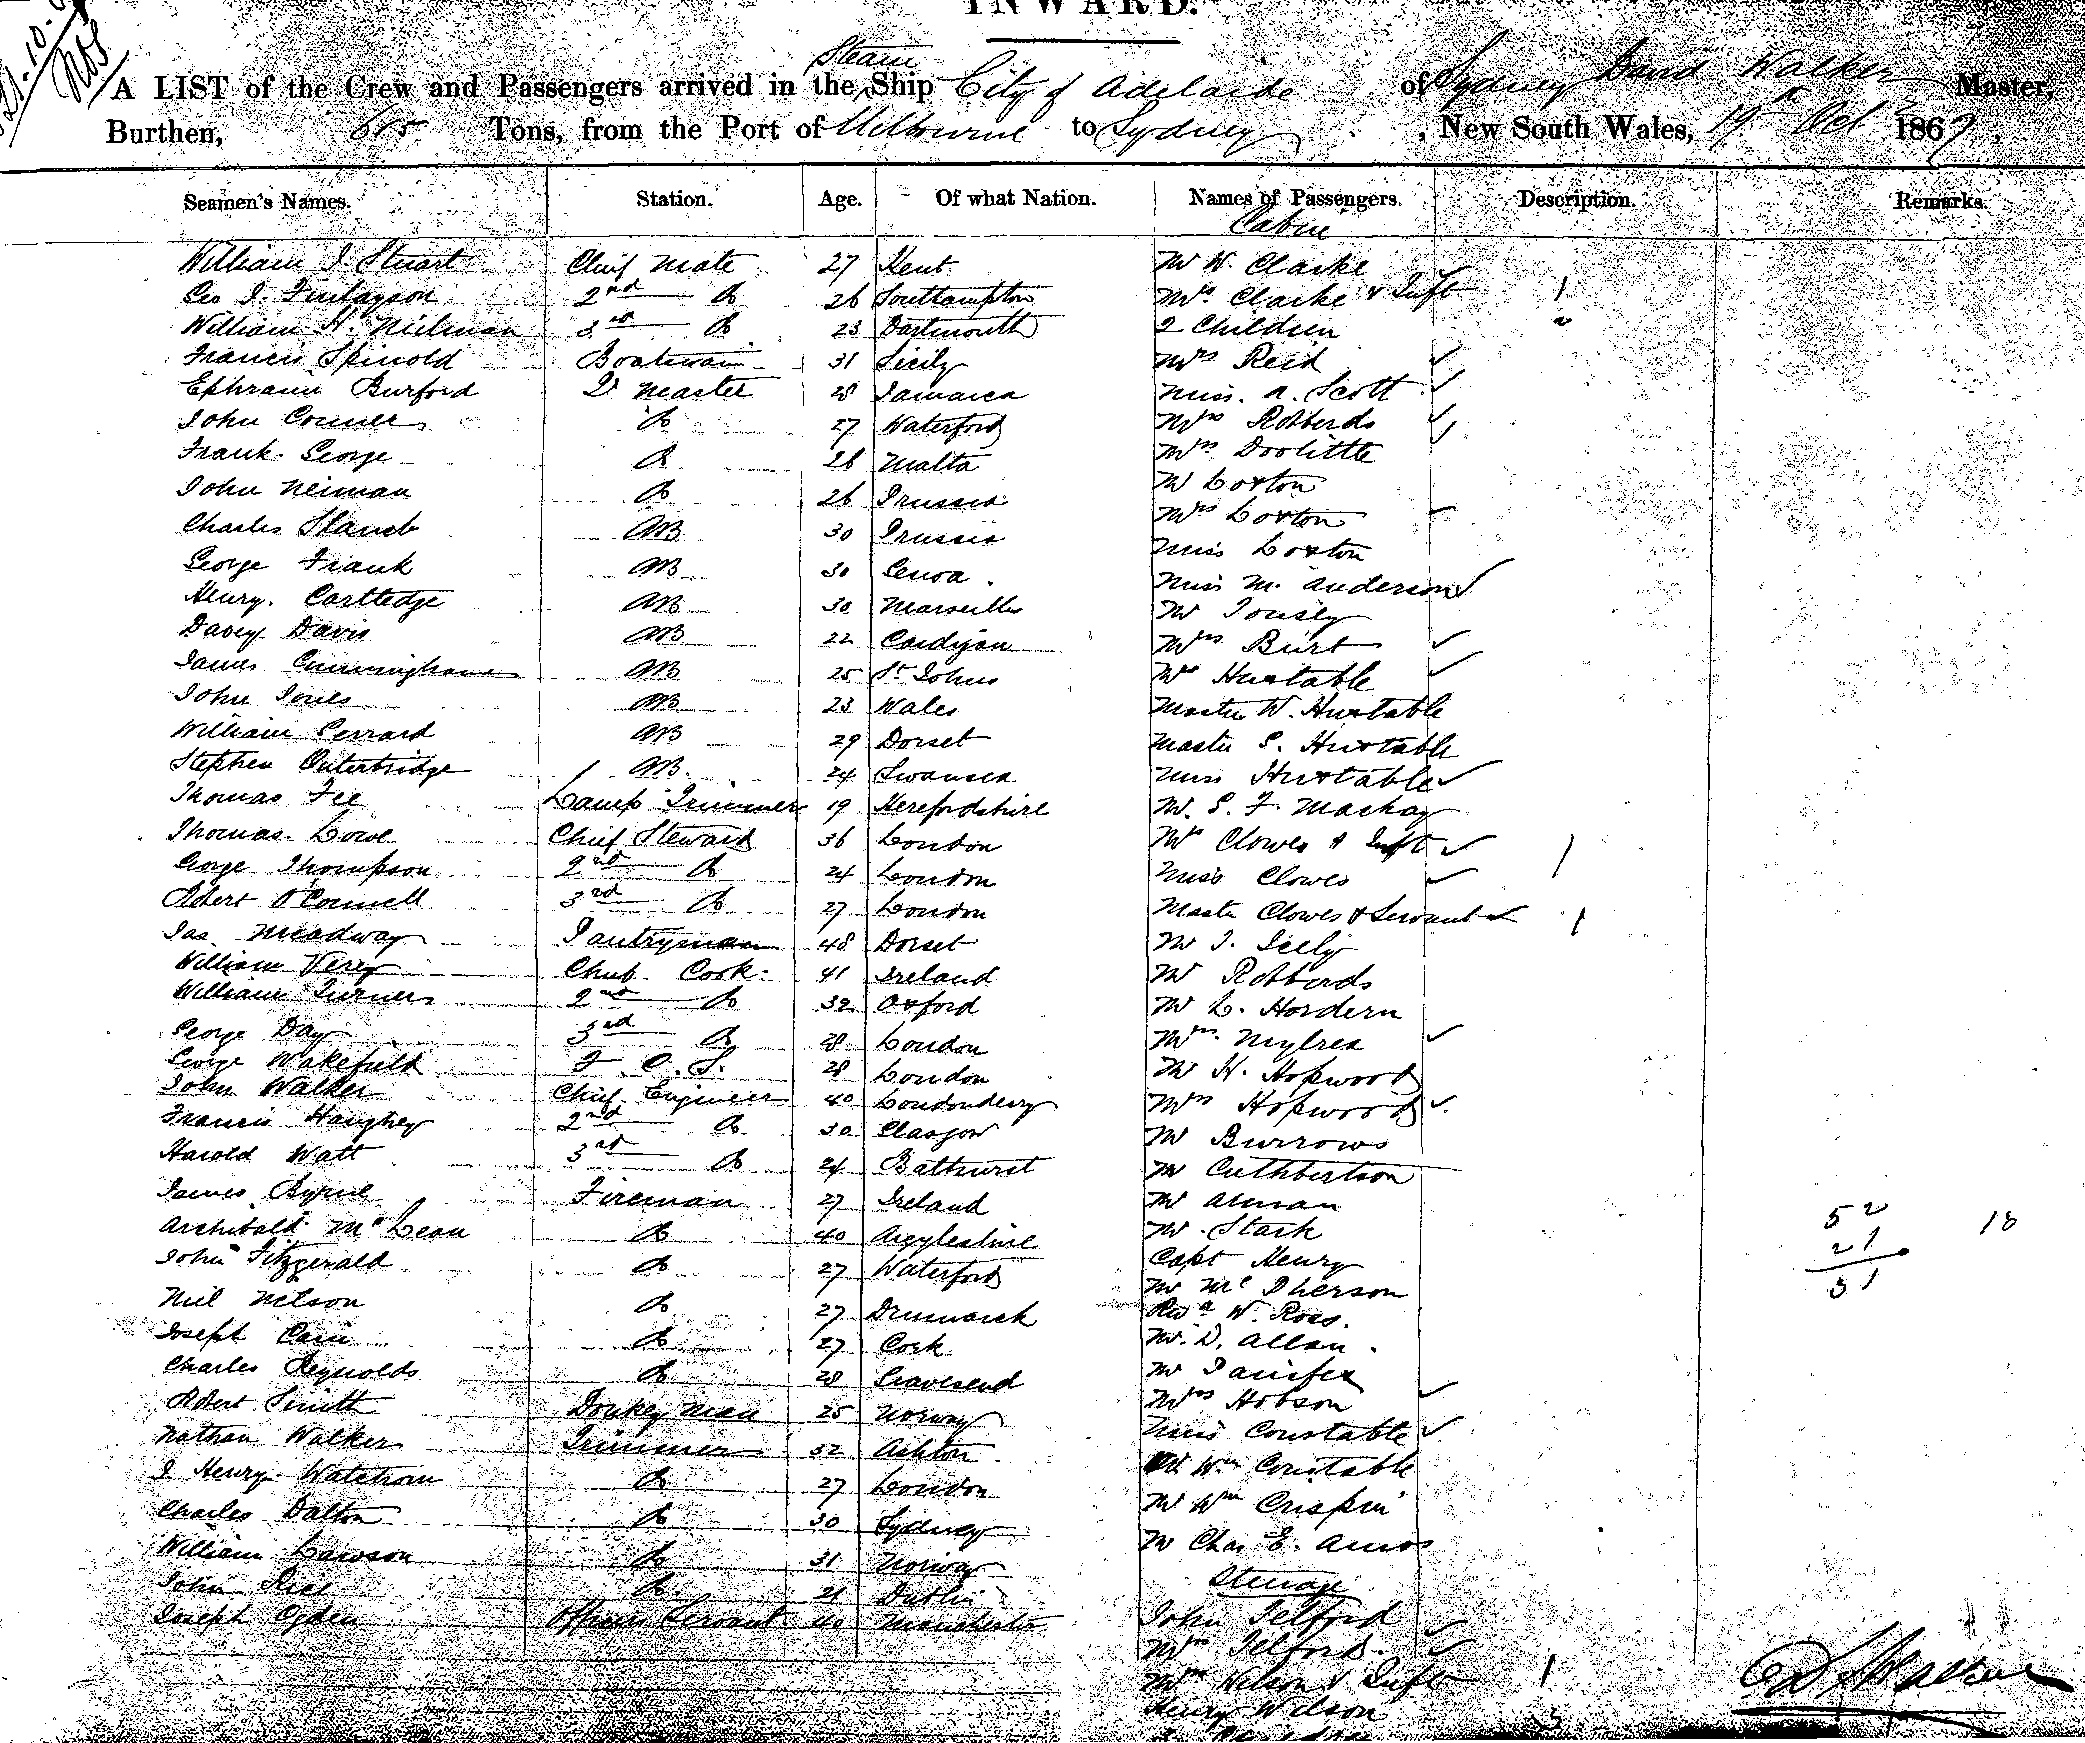 INWARD.
Steam
A LIST of the Crew and Passengers arrived in the Ship City of Adelaide of Sydney David Walker Master,
Burthen, 605 Tons, from the Port of Melbourne to Sydney, New South Wales, 19th Oct 1867,
Seamen's Names. Station. Age. Of what Nation. Names of Passengers. Description. Remarks.
Cabin
William J Stuart Chief Mate 27 Kent Mr W. Clarke
Geo J. Finlayson 2nd Do 26 Southampton Mrs Clarke & Inft 1
William H. 3rd Do 23 Dartmouth 2 Children 2
Francis Spinold Boatswain 31 Sicily Mrs Reid
Ephraim Burford Qr Master 28 Jamaica Miss. A. Scott
John Conner Do 27 Waterford Mrs Robberds
Frank George Do 28 Malta Mrs Doolittle
John Neiman Do 26 Prussia Mr Loxton
Charles AB 30 Prussia Mrs Loxton
George Frank AB 30 Genoa. Miss Loxton
Henry. Cartledge AB 30 Marseilles Miss M. Anderson
Davey Davis AB 22 Cardigan Mr
James Cunningham AB 25 St Johns Mrs Burt
John Jones AB 23 Wales Mrs Huxtable
William Gerrard AB 29 Dorset Master W. Huxtable
Stephen Outerbridge AB 24 Swansea Master S. Huxtable
Thomas Fee Lamp Trimmer 19 Herefordshire Miss Huxtable
Thomas Lowe Chief Steward 36 London Mr. S. F. Mackay
George Thompson 2nd Do 24 London Mrs Clowes & Inft 1
Robert O'Connell 3rd Do 27 London Miss Clowes
Jas Meadway Pantryman 48 Dorset Master Clowes & Servant 1
William Verey Chief Cook 41 Ireland Mr J. Seely
William Turner 2nd Do 32 Oxford Mr Robberds
George Day 3rd Do 28 London Mr L. Hordern
George Wakefield F. C. S. 28 London Mrs. Mylrea
John Walker Chief Engineer 40 Londonderry Mr H. Hopwood
Francis Haughey 2nd Do 30 Glasgow Mrs Hopwood
Harold Watt 3rd Do 24 Bathurst Mr Burrows
James Byrne Fireman 27 Ireland Mr Cuthbertson
Archibald McLean Do 40 Argyleshire Mr Alman
John Fitzgerald Do 27 Waterford Mr. Stark
Neil Nelson Do 27 Denmark Capt Henry
Joseph Cain Do 27 Cork Mr McPherson
Charles Reynolds Do 28 Gravesend Revd W. Ross.
Robert Smith Donkey man 25 Norway Mr. D. Allan.
Nathan Walker Trimmer 32 Ashton Mr
J Henry Do 27 London Mrs Hobson
Charles Dalton Do 30 Sydney Miss Constable
William Lawson Do 31 Norway Wm Constable
John Rice Do 21 Dublin Mr Wm Crispin
Joseph Ogden Officers Servant 40 Manchester Mr Chas E. Amos
Steerage
John Telford
Mrs Telford.
Mrs Wilson & Inft 1
Henry Wilson
52 18
21
31